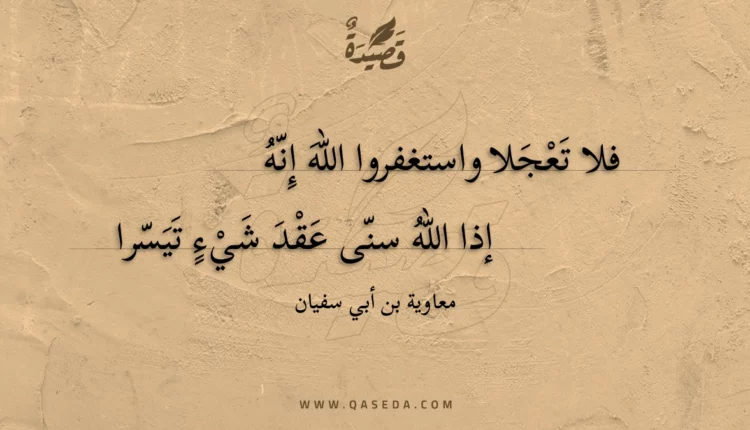 قَصِيْدَةٌ
فلا تَعْجَلا واستغفروا اللهَ إِنّهُ
إذا اللهُ سنّى عَقْدَ شَيْءٍ تَيَسّرا
معاوية بن أبي سفيان
WWW.QASEDA.COM